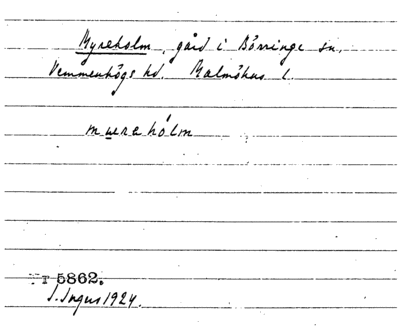 Myreholm, gård i Börringe sn,
Vemmenhögs hd. Malmöhus l.
mureholm
T 5862.
J. Ingers 1924.